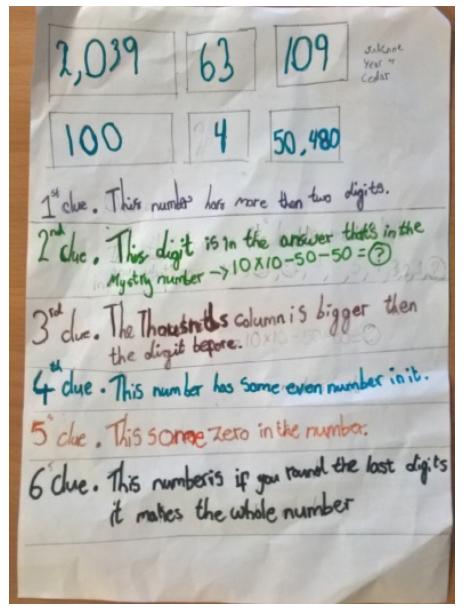 2,039 63 109
Year 4
Cedar
100 4 50,480
1st clue. This number has more than two digits.
2nd clue. This digit is in the answer that's in the
Mystry number → 10x10-50-50 = ?
3rd clue. The Thousnds column is bigger then
the digit before.
4th clue. This number has some even number in it.
5 clue. This some zero in the number.
6 clue. This number is if you round the last digits
it makes the whole number